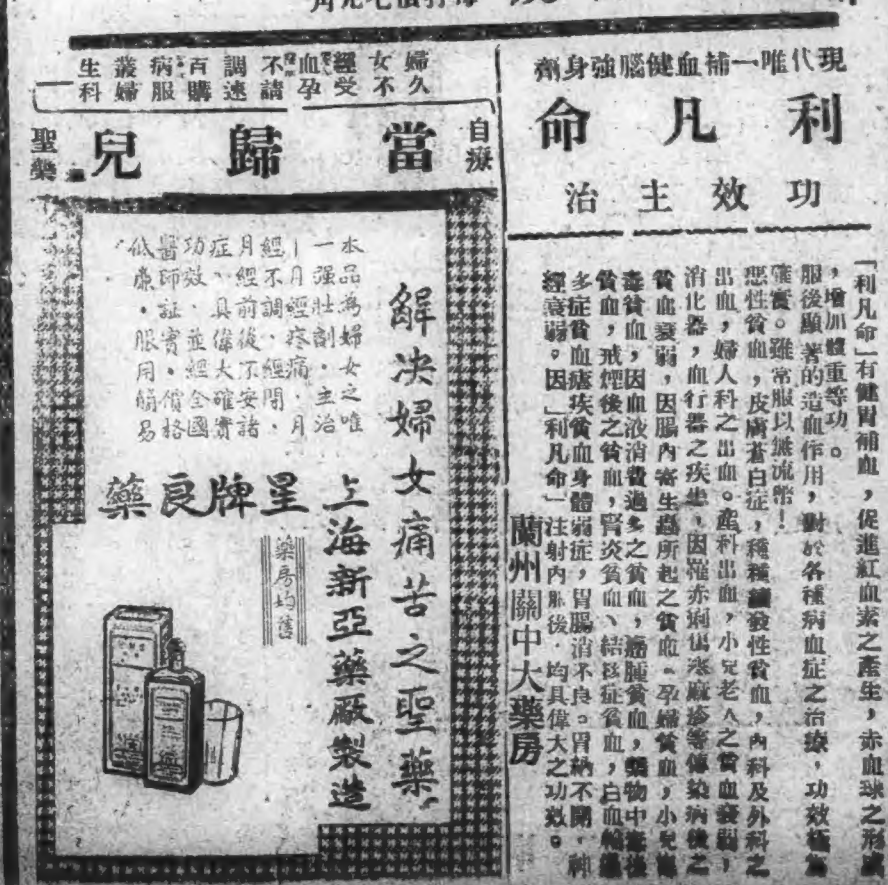 現代唯一補血健腦強身劑
利凡命
功效主治
「利凡命」有健胃補血，促進紅血素之產生，赤血球之形成
，增加體重等功。
服後顯著的造血作用，對於各種病血症之治療，功效極為
確實。雖常服以無流弊！
惡性貧血，皮膚蒼白症，種種續發性貧血，內科及外科之
出血，婦人科之出血。產科出血，小兒老人之貧血衰弱，
消化器，血行器之疾患，因罹赤痢傷寒麻疹等傳染病後之
貧血衰弱，因腸內寄生蟲所起之貧血。孕婦貧血，小兒
毒貧血，因血液消費過多之貧血，癌腫貧血，藥物中毒後
貧血，戒煙後之貧血，腎炎貧血、結核症貧血，白血
多症貧血瘧疾貧血身體弱症，胃腸消不良。胃納不開，神
經衰弱。因「利凡命」注射內服後，均具偉大之功效。
蘭州關中大藥房
婦女經血不調百病叢生
久不受孕請速購服婦科
自療
當歸兒
聖藥
解決婦女痛苦之聖藥，
本品為婦女之唯
一強壯劑，主治
月經疼痛，月
經不調，經閉，
月經前後不安諸
症，具偉大確實
功效，並經全國
醫師証實，價格
低廉，服用簡易
上海新亞藥廠製造
星牌良藥
藥房均售